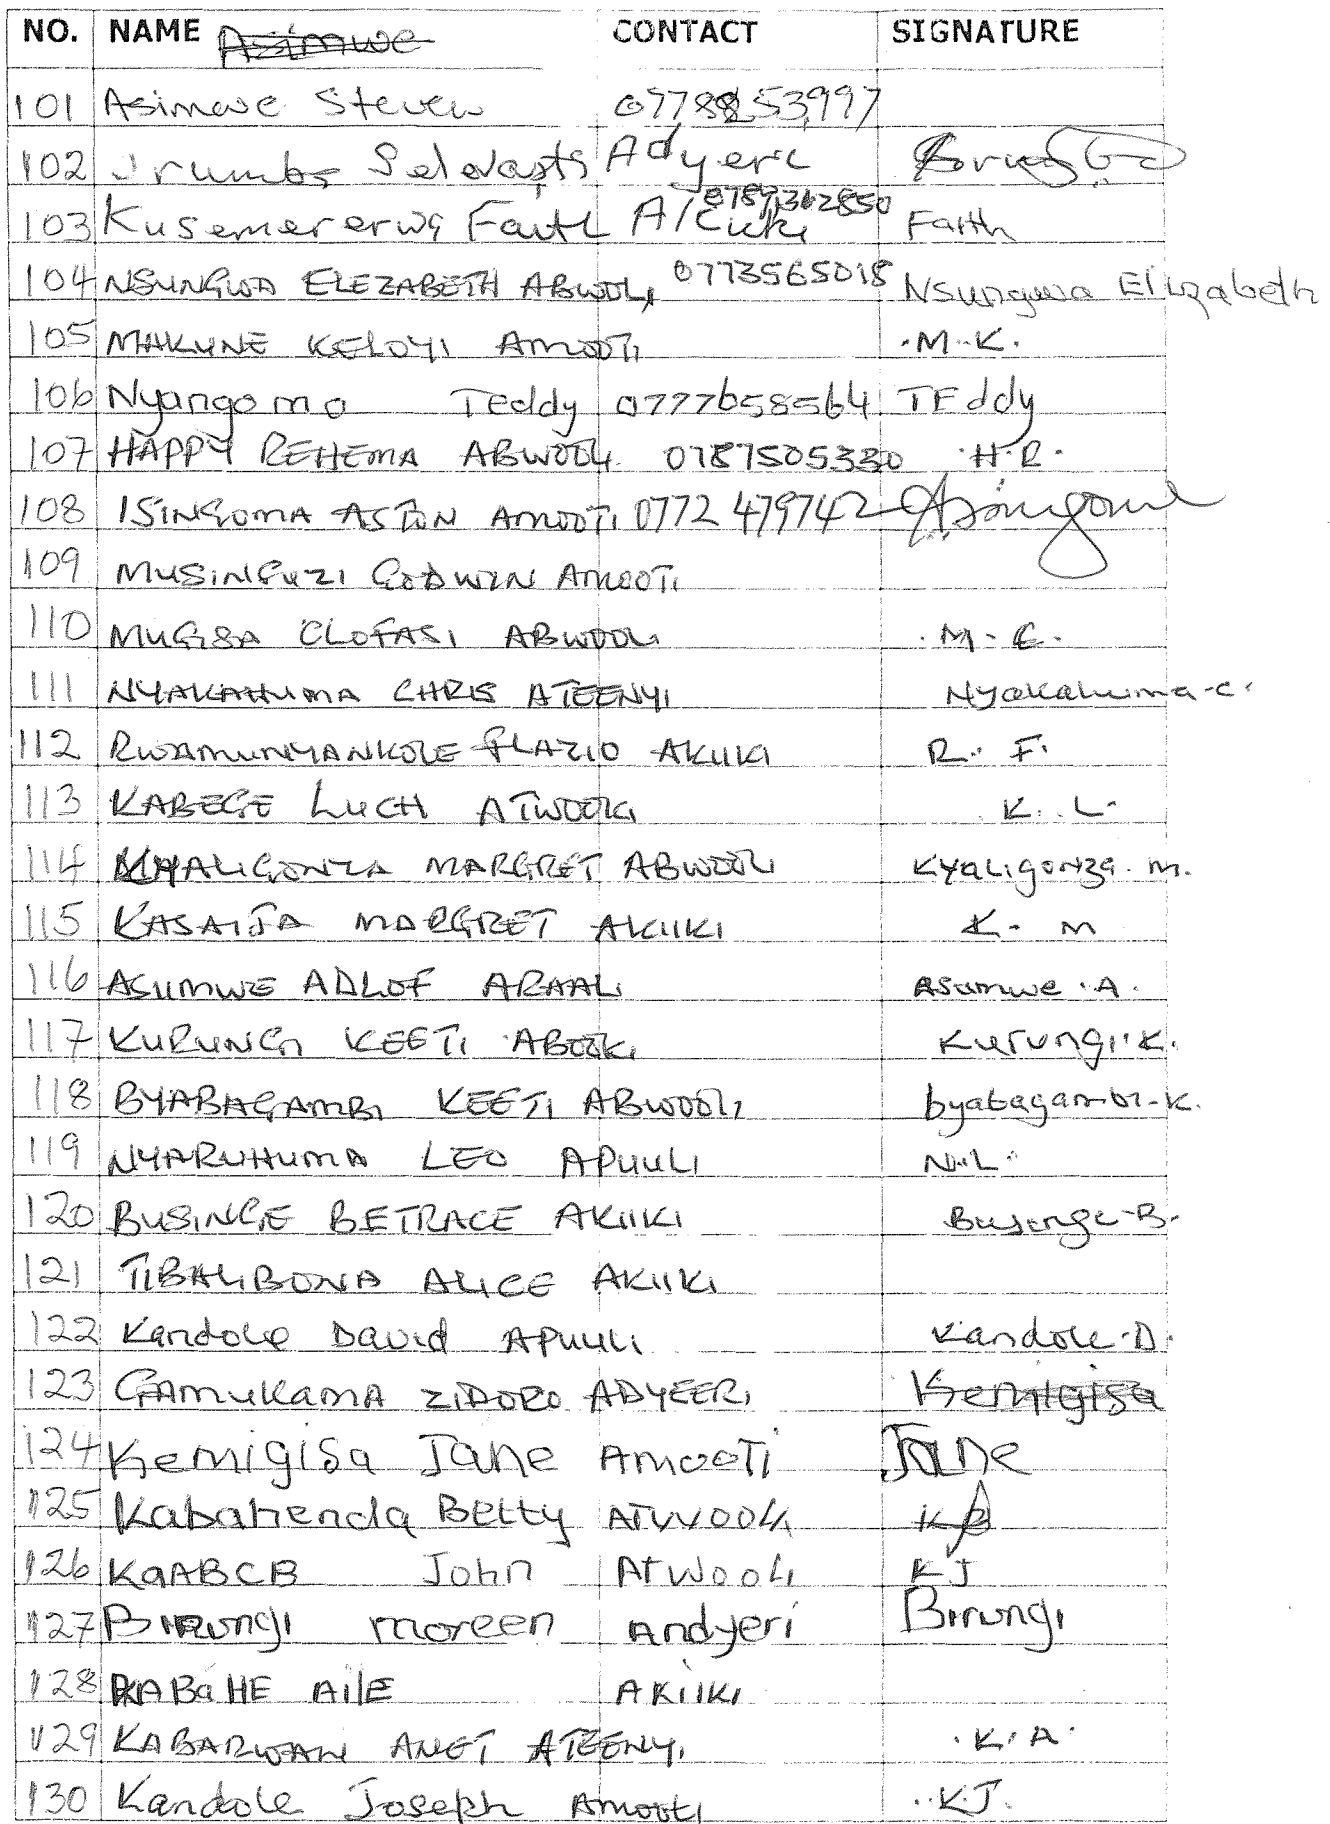 NO. NAME Asimwe CONTACT SIGNATURE
101 Asimwe Steven
102 Adyeri
103 Kusemererwa Faith A/Ciiki 0789312850 Faith
104 NSUNGWA ELEZABETH ABWOLI 0773565018 Nsungwa Elizabeth
105 MAKUNE KELOYI AMOOTI M.K.
106 Nyangoma Teddy 0777658564 TEddy
107 HAPPY REHEMA ABWOOLI 0787505330 H.R.
108 ISINGOMA ASTON AMOOTI 0772 479742 Asingoma
109 MUSINGUZI GODWIN AMOOTI
110 MUGISA CLOFASI ABWOOLI M.C.
111 NYAKAHUMA CHRIS ATEENYI Nyakahuma.c.
112 RWAMUNYANKOLE FLAZIO AKIIKI R. F.
113 KABEGE LUCH ATWOOKI K. L.
114 KYALIGONZA MARGRET ABWOOLI Kyaligonza. m.
115 KASAIJA MARGRET AKIIKI K. M
116 ASUMWE ADLOF ARAALI Asumwe .A.
117 KURUNGI KEETI ABOOKI Kurungi.K.
118 BYABAGAMBI KEETI ABWOOLI byabagambi-K.
119 NYARUHUMA LEO APUULI N.L.
120 BUSINGE BETRACE AKIIKI Businge-B.
121 TIBALIBONA ALICE AKIIKI
122 Kandole David APUULI Kandole.D.
123 GAMUKAMA ZIDORO ADYEERI Kemigisa
124 Kemigisa Jane AMOOTI Jane
125 Kabahenda Betty ATWOOLI KB
126 KaABCB John ATWOOLI KJ
127 Birungi moreen Andyeri Birungi
128 KABaHE AilE AKIIKI
129 KABARWANI ANET ATEENYI K.A.
130 Kandole Joseph Amooti K.J.